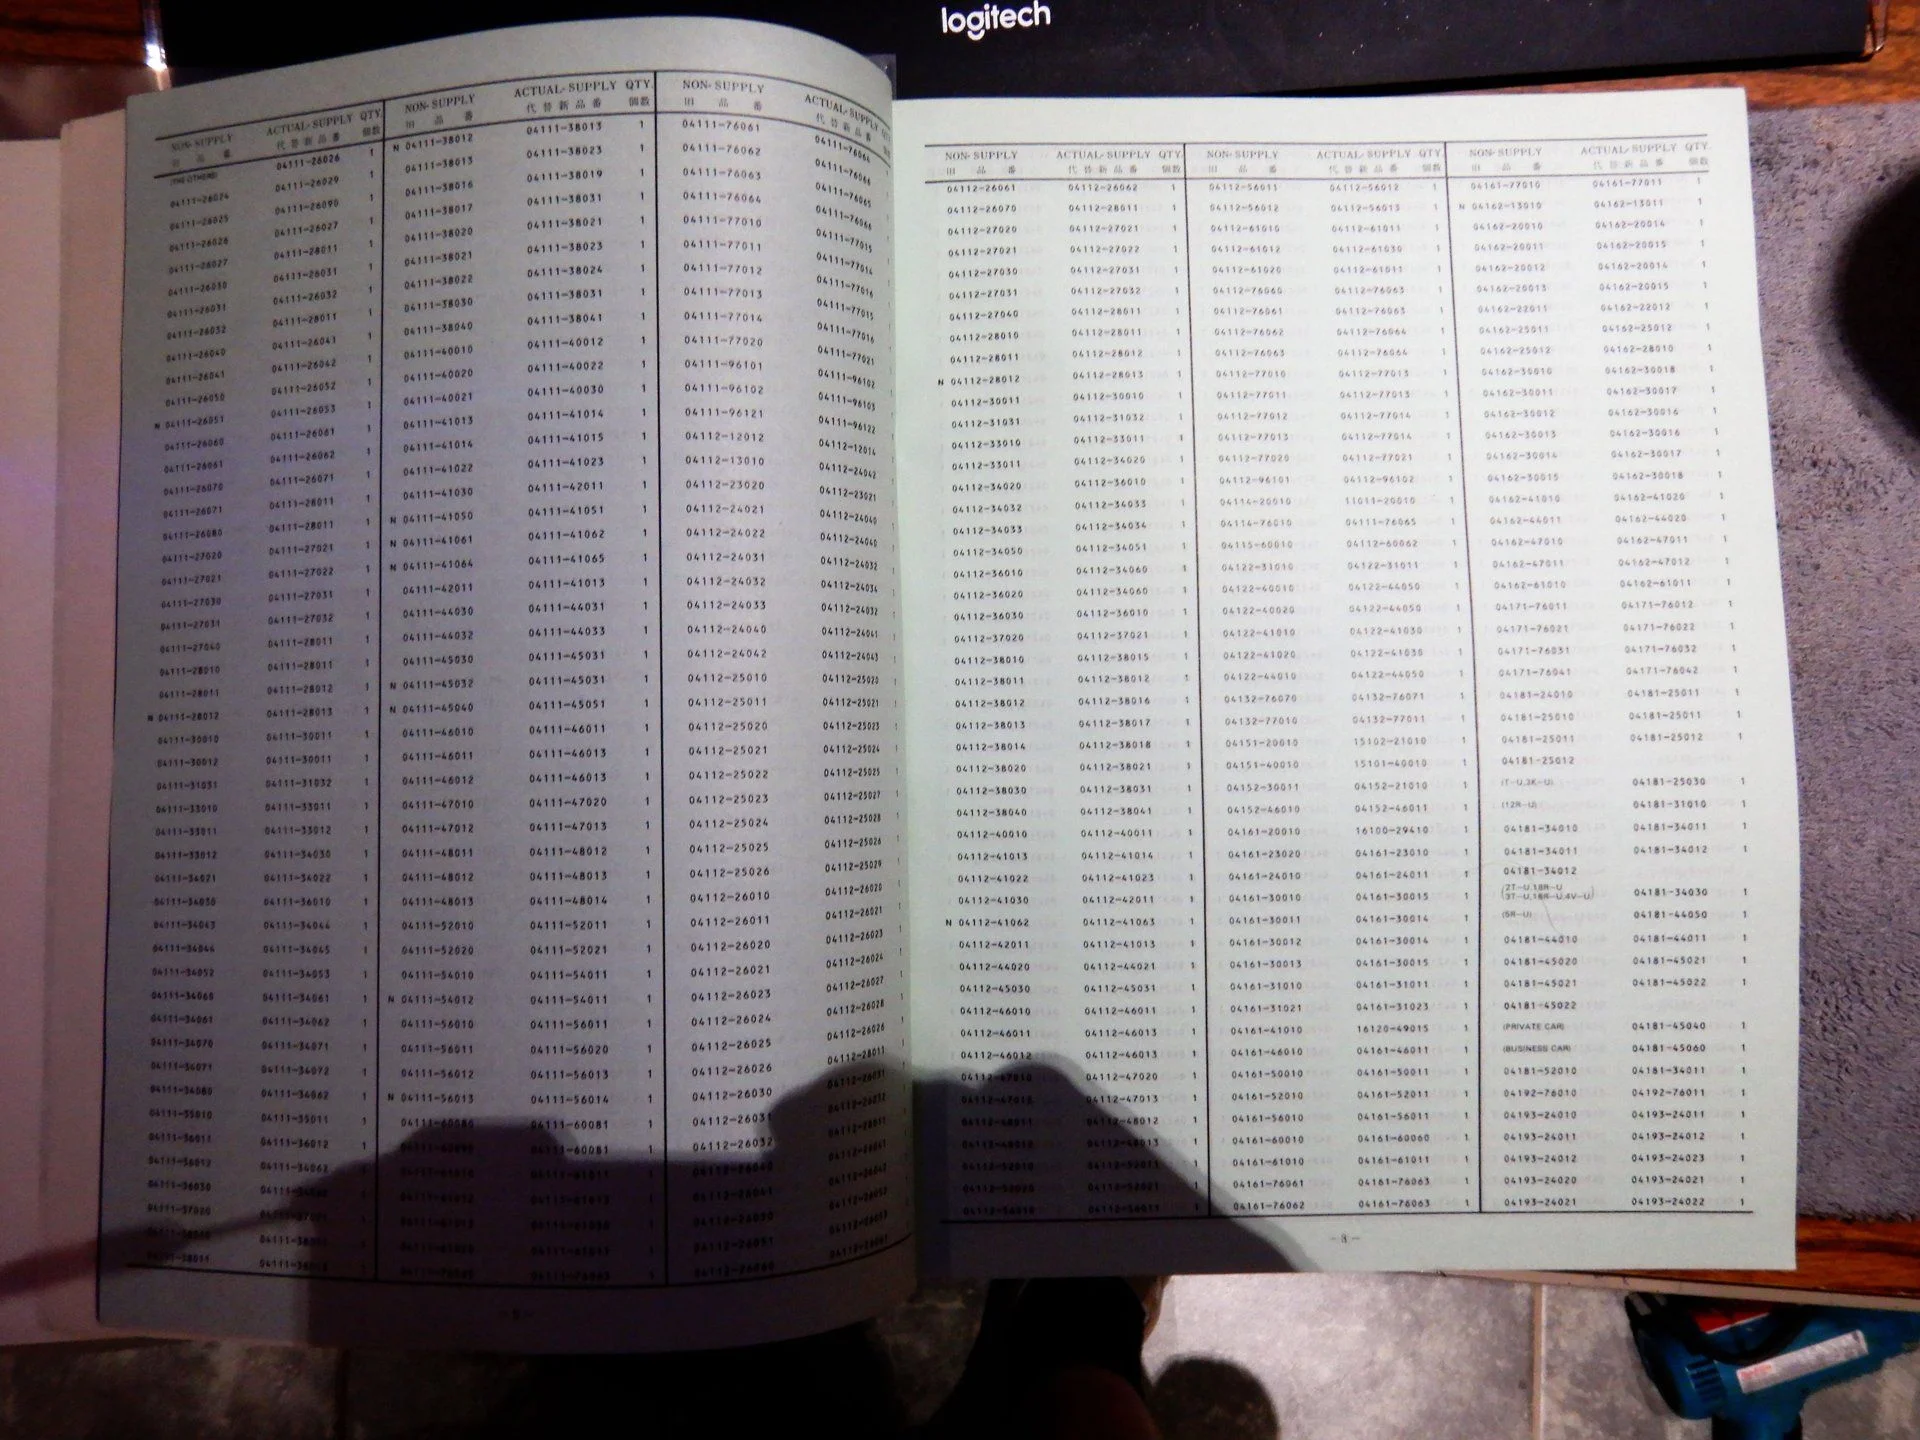 logitech
NON-SUPPLY ACTUAL-SUPPLY QTY.
旧 品 番 代 替 新 品 番 個数
(THE OTHERS) 04111-26026 1
04111-26024 04111-26029 1
04111-26025 04111-26090 1
04111-26026 04111-26027 1
04111-26027 04111-28011 1
04111-26030 04111-26031 1
04111-26031 04111-26032 1
04111-26032 04111-28011 1
04111-26040 04111-26041 1
04111-26041 04111-26042 1
04111-26050 04111-26052 1
N 04111-26051 04111-26053 1
04111-26060 04111-26061 1
04111-26061 04111-26062 1
04111-26070 04111-26071 1
04111-26071 04111-28011 1
04111-26080 04111-28011 1
04111-27020 04111-27021 1
04111-27021 04111-27022 1
04111-27030 04111-27031 1
04111-27031 04111-27032 1
04111-27040 04111-28011 1
04111-28010 04111-28011 1
04111-28011 04111-28012 1
N 04111-28012 04111-28013 1
04111-30010 04111-30011 1
04111-30012 04111-30011 1
04111-31031 04111-31032 1
04111-33010 04111-33011 1
04111-33011 04111-33012 1
04111-33012 04111-34030 1
04111-34021 04111-34022 1
04111-34030 04111-36010 1
04111-34043 04111-34044 1
04111-34044 04111-34045 1
04111-34052 04111-34053 1
04111-34060 04111-34061 1
04111-34061 04111-34062 1
04111-34070 04111-34071 1
04111-34071 04111-34072 1
04111-34080 04111-34062 1
04111-35010 04111-35011 1
04111-36011 04111-36012 1
04111-36012 04111-34063 1
04111-36030
04111-37020
NON-SUPPLY ACTUAL-SUPPLY QTY.
旧 品 番 代 替 新 品 番 個数
N 04111-38012 04111-38013 1
04111-38013 04111-38023 1
04111-38016 04111-38019 1
04111-38017 04111-38031 1
04111-38020 04111-38021 1
04111-38021 04111-38023 1
04111-38022 04111-38024 1
04111-38030 04111-38031 1
04111-38040 04111-38041 1
04111-40010 04111-40012 1
04111-40020 04111-40022 1
04111-40021 04111-40030 1
04111-41013 04111-41014 1
04111-41014 04111-41015 1
04111-41022 04111-41023 1
04111-41030 04111-42011 1
N 04111-41050 04111-41051 1
N 04111-41061 04111-41062 1
N 04111-41064 04111-41065 1
04111-42011 04111-41013 1
04111-44030 04111-44031 1
04111-44032 04111-44033 1
04111-45030 04111-45031 1
N 04111-45032 04111-45031 1
N 04111-45040 04111-45051 1
04111-46010 04111-46011 1
04111-46011 04111-46013 1
04111-46012 04111-46013 1
04111-47010 04111-47020 1
04111-47012 04111-47013 1
04111-48011 04111-48012 1
04111-48012 04111-48013 1
04111-48013 04111-48014 1
04111-52010 04111-52011 1
04111-52020 04111-52021 1
04111-54010 04111-54011 1
N 04111-54012 04111-54011 1
04111-56010 04111-56011 1
04111-56011 04111-56020 1
04111-56012 04111-56013 1
N 04111-56013 04111-56014 1
04111-60080 04111-60081 1
04111-60081 1
NON-SUPPLY ACTUAL-SUPPLY QTY.
旧 品 番 代 替 新 品 番 個数
04111-76061 04111-76064
04111-76062 04111-76066
04111-76063 04111-76065
04111-76064 04111-76066
04111-77010 04111-77015
04111-77011 04111-77014
04111-77012 04111-77016
04111-77013 04111-77015
04111-77014 04111-77016
04111-77020 04111-77021
04111-96101 04111-96102
04111-96102 04111-96103
04111-96121 04111-96122
04112-12012 04112-12014
04112-13010 04112-24042
04112-23020 04112-23021
04112-24021 04112-24040
04112-24022 04112-24040
04112-24031 04112-24032
04112-24032 04112-24034
04112-24033 04112-24032
04112-24040 04112-24041
04112-24042 04112-24043
04112-25010 04112-25020
04112-25011 04112-25021
04112-25020 04112-25023
04112-25021 04112-25024
04112-25022 04112-25025
04112-25023 04112-25027
04112-25024 04112-25028
04112-25025 04112-25026
04112-25026 04112-25029
04112-26010 04112-26020
04112-26011 04112-26021
04112-26020 04112-26023
04112-26021 04112-26024
04112-26023 04112-26027
04112-26024 04112-26028
04112-26025 04112-26026
04112-26026 04112-28011
04112-26030 04112-26031
04112-26031 04112-26032
04112-26032 04112-28011
04112-26040 04112-26041
04112-26041 04112-26042
04112-26050 04112-26052
04112-26051 04112-26053
04112-26060 04112-26061
NON-SUPPLY ACTUAL-SUPPLY QTY.
旧 品 番 代 替 新 品 番 個数
04112-26061 04112-26062 1
04112-26070 04112-28011 1
04112-27020 04112-27021 1
04112-27021 04112-27022 1
04112-27030 04112-27031 1
04112-27031 04112-27032 1
04112-27040 04112-28011 1
04112-28010 04112-28011 1
04112-28011 04112-28012 1
N 04112-28012 04112-28013 1
04112-30011 04112-30010 1
04112-31031 04112-31032 1
04112-33010 04112-33011 1
04112-33011 04112-34020 1
04112-34020 04112-36010 1
04112-34032 04112-34033 1
04112-34033 04112-34034 1
04112-34050 04112-34051 1
04112-36010 04112-34060 1
04112-36020 04112-34060 1
04112-36030 04112-36010 1
04112-37020 04112-37021 1
04112-38010 04112-38015 1
04112-38011 04112-38012 1
04112-38012 04112-38016 1
04112-38013 04112-38017 1
04112-38014 04112-38018 1
04112-38020 04112-38021 1
04112-38030 04112-38031 1
04112-38040 04112-38041 1
04112-40010 04112-40011 1
04112-41013 04112-41014 1
04112-41022 04112-41023 1
04112-41030 04112-42011 1
N 04112-41062 04112-41063 1
04112-42011 04112-41013 1
04112-44020 04112-44021 1
04112-45030 04112-45031 1
04112-46010 04112-46011 1
04112-46011 04112-46013 1
04112-46012 04112-46013 1
04112-47010 04112-47020 1
04112-47012 04112-47013 1
04112-48011 04112-48012 1
04112-48012 04112-48013 1
04112-52010 04112-52011 1
04112-52020 04112-52021 1
04112-56010 04112-56011 1
NON-SUPPLY ACTUAL-SUPPLY QTY.
旧 品 番 代 替 新 品 番 個数
04112-56011 04112-56012 1
04112-56012 04112-56013 1
04112-61010 04112-61011 1
04112-61012 04112-61030 1
04112-61020 04112-61011 1
04112-76060 04112-76063 1
04112-76061 04112-76063 1
04112-76062 04112-76064 1
04112-76063 04112-76064 1
04112-77010 04112-77013 1
04112-77011 04112-77013 1
04112-77012 04112-77014 1
04112-77013 04112-77014 1
04112-77020 04112-77021 1
04112-96101 04112-96102 1
04114-20010 11011-20010 1
04114-76010 04111-76065 1
04115-60010 04112-60062 1
04122-31010 04122-31011 1
04122-40010 04122-44050 1
04122-40020 04122-44050 1
04122-41010 04122-41030 1
04122-41020 04122-41030 1
04122-44010 04122-44050 1
04132-76070 04132-76071 1
04132-77010 04132-77011 1
04151-20010 15102-21010 1
04151-40010 15101-40010 1
04152-30011 04152-21010 1
04152-46010 04152-46011 1
04161-20010 16100-29410 1
04161-23020 04161-23010 1
04161-24010 04161-24011 1
04161-30010 04161-30015 1
04161-30011 04161-30014 1
04161-30012 04161-30014 1
04161-30013 04161-30015 1
04161-31010 04161-31011 1
04161-31021 04161-31023 1
04161-41010 16120-49015 1
04161-46010 04161-46011 1
04161-50010 04161-50011 1
04161-52010 04161-52011 1
04161-56010 04161-56011 1
04161-60010 04161-60060 1
04161-61010 04161-61011 1
04161-76061 04161-76063 1
04161-76062 04161-76063 1
NON-SUPPLY ACTUAL-SUPPLY QTY.
旧 品 番 代 替 新 品 番 個数
04161-77010 04161-77011 1
N 04162-13010 04162-13011 1
04162-20010 04162-20014 1
04162-20011 04162-20015 1
04162-20012 04162-20014 1
04162-20013 04162-20015 1
04162-22011 04162-22012 1
04162-25011 04162-25012 1
04162-25012 04162-28010 1
04162-30010 04162-30018 1
04162-30011 04162-30017 1
04162-30012 04162-30016 1
04162-30013 04162-30016 1
04162-30014 04162-30017 1
04162-30015 04162-30018 1
04162-41010 04162-41020 1
04162-44011 04162-44020 1
04162-47010 04162-47011 1
04162-47011 04162-47012 1
04162-61010 04162-61011 1
04171-76011 04171-76012 1
04171-76021 04171-76022 1
04171-76031 04171-76032 1
04171-76041 04171-76042 1
04181-24010 04181-25011 1
04181-25010 04181-25011 1
04181-25011 04181-25012 1
04181-25012
(T-U,3K-U) 04181-25030 1
(12R-U) 04181-31010 1
04181-34010 04181-34011 1
04181-34011 04181-34012 1
04181-34012
(2T-U,18R-U
3T-U,16R-U,4V-U) 04181-34030 1
(5R-U) 04181-44050 1
04181-44010 04181-44011 1
04181-45020 04181-45021 1
04181-45021 04181-45022 1
04181-45022
(PRIVATE CAR) 04181-45040 1
(BUSINESS CAR) 04181-45060 1
04181-52010 04181-34011 1
04192-76010 04192-76011 1
04193-24010 04193-24011 1
04193-24011 04193-24012 1
04193-24012 04193-24023 1
04193-24020 04193-24021 1
04193-24021 04193-24022 1
-8-